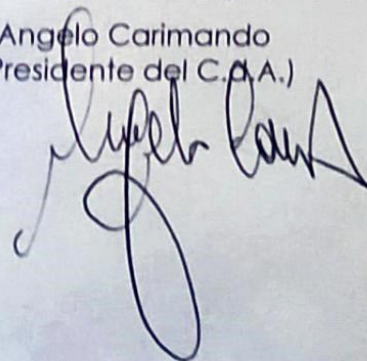 Angelo Carimando
Presidente del C.d.A.)
Angelo